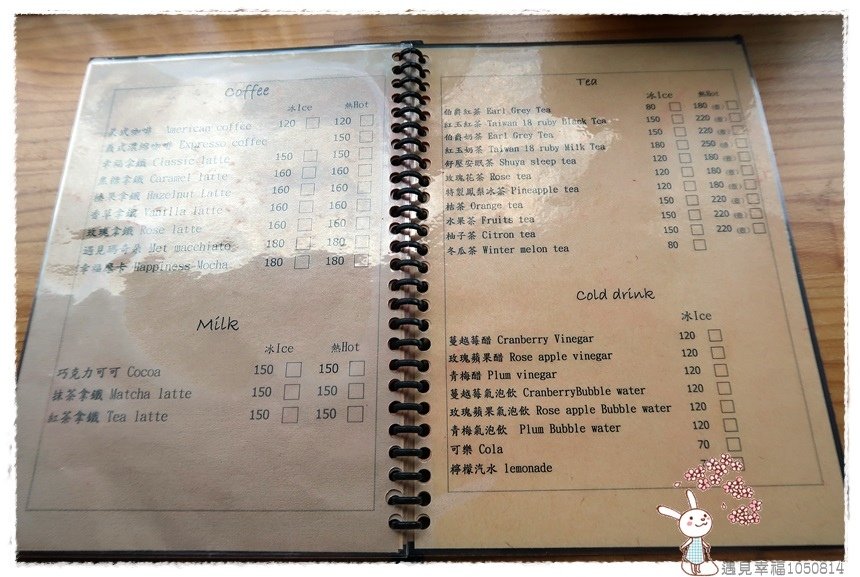 Coffee
冰Ice 熱Hot
美式咖啡 American coffee 120 120
義式濃縮咖啡 Expresso coffee 150
幸福拿鐵 Classic latte 150 150
焦糖拿鐵 Caramel latte 160 160
榛果拿鐵 Hazelnut Latte 160 160
香草拿鐵 Vanilla latte 160 160
玫瑰拿鐵 Rose latte 160 160
遇見瑪奇朵 Met macchiato 180 180
幸福摩卡 Happiness Mocha 180 180
Milk
冰Ice 熱Hot
巧克力可可 Cocoa 150 150
抹茶拿鐵 Matcha latte 150 150
紅茶拿鐵 Tea latte 150 150
Tea
冰Ice 熱Hot
伯爵紅茶 Earl Grey Tea 80 180
紅玉紅茶 Taiwan 18 ruby Black Tea 150 220
伯爵奶茶 Earl Grey Tea 150 220
紅玉奶茶 Taiwan 18 ruby Milk Tea 180 250
舒壓安眠茶 Shuya sleep tea 120 180
玫瑰花茶 Rose tea 120 180
特製鳳梨冰茶 Pineapple tea 120 180
桔茶 Orange tea 150 220
水果茶 Fruits tea 150 220
柚子茶 Citron tea 150 220
冬瓜茶 Winter melon tea 80
Cold drink
冰Ice
蔓越莓醋 Cranberry Vinegar 120
玫瑰蘋果醋 Rose apple vinegar 120
青梅醋 Plum vinegar 120
蔓越莓氣泡飲 CranberryBubble water 120
玫瑰蘋果氣泡飲 Rose apple Bubble water 120
青梅氣泡飲 Plum Bubble water 120
可樂 Cola 70
檸檬汽水 lemonade
遇見幸福1050814